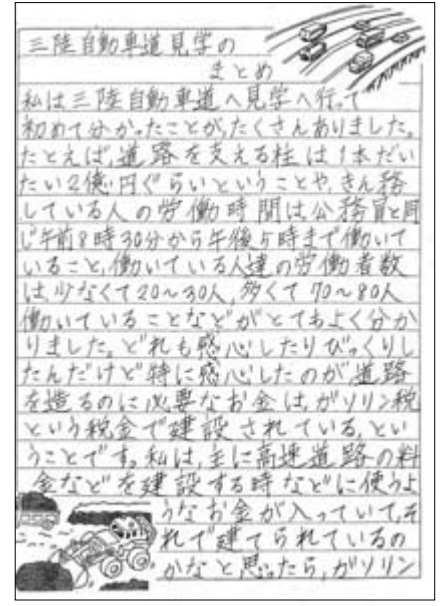 三陸自動車道見学の
まとめ
私は三陸自動車道へ見学へ行って
初めて分かったことが、たくさんありました。
たとえば、道路を支える柱は1本だい
たい2億円ぐらいということや、きん務
している人の労働時間は公務員と同
じ午前8時30分から午後5時まで働いて
いること、働いている人達の労働者数
は、少なくて20〜30人、多くて70〜80人
働いていることなどがとてもよく分か
りました。どれも感心したりびっくりし
たんだけど特に感心したのが、道路
を造るのに必要なお金は、ガソリン税
という税金で建設されている、とい
うことです。私は、主に高速道路の料
金などを建設する時などに使うよ
うなお金が入っていて、そ
れで建てられているの
かなと思ったら、ガソリン